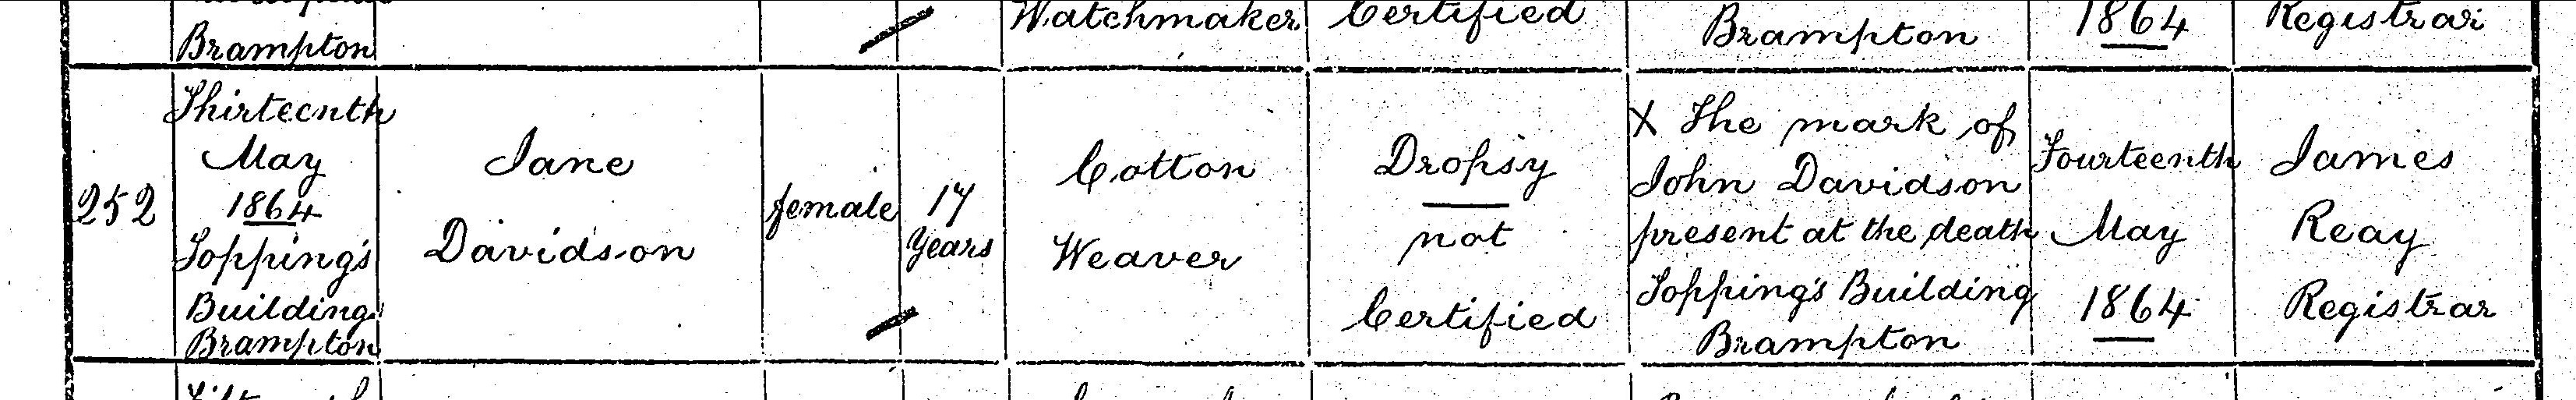 Brampton
Watchmaker
Certified
Brampton
1864
Registrar
252
Thirteenth
May
1864
Topping's
Building
Brampton
Jane
Davidson
female
17
Years
Cotton
Weaver
Dropsy
not
Certified
X The mark of
John Davidson
present at the death
Topping's Building
Brampton
Fourteenth
May
1864
James
Reay
Registrar